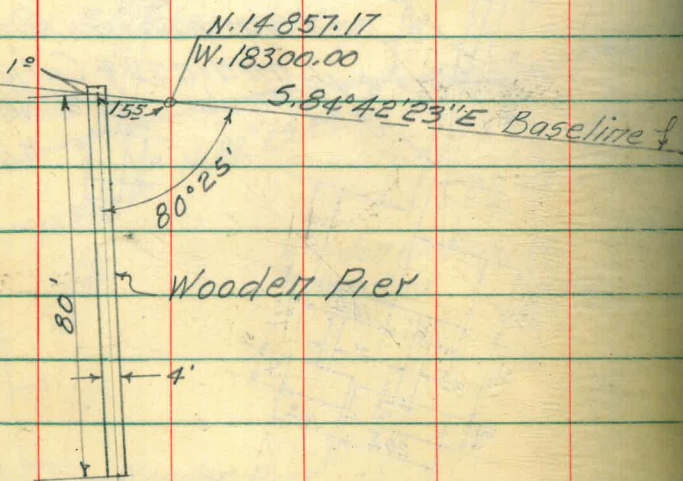 N.14857.17
W.18300.00
1º
155
S.84°42'23"E Baseline
80°25'
Wooden Pier
80'
4'